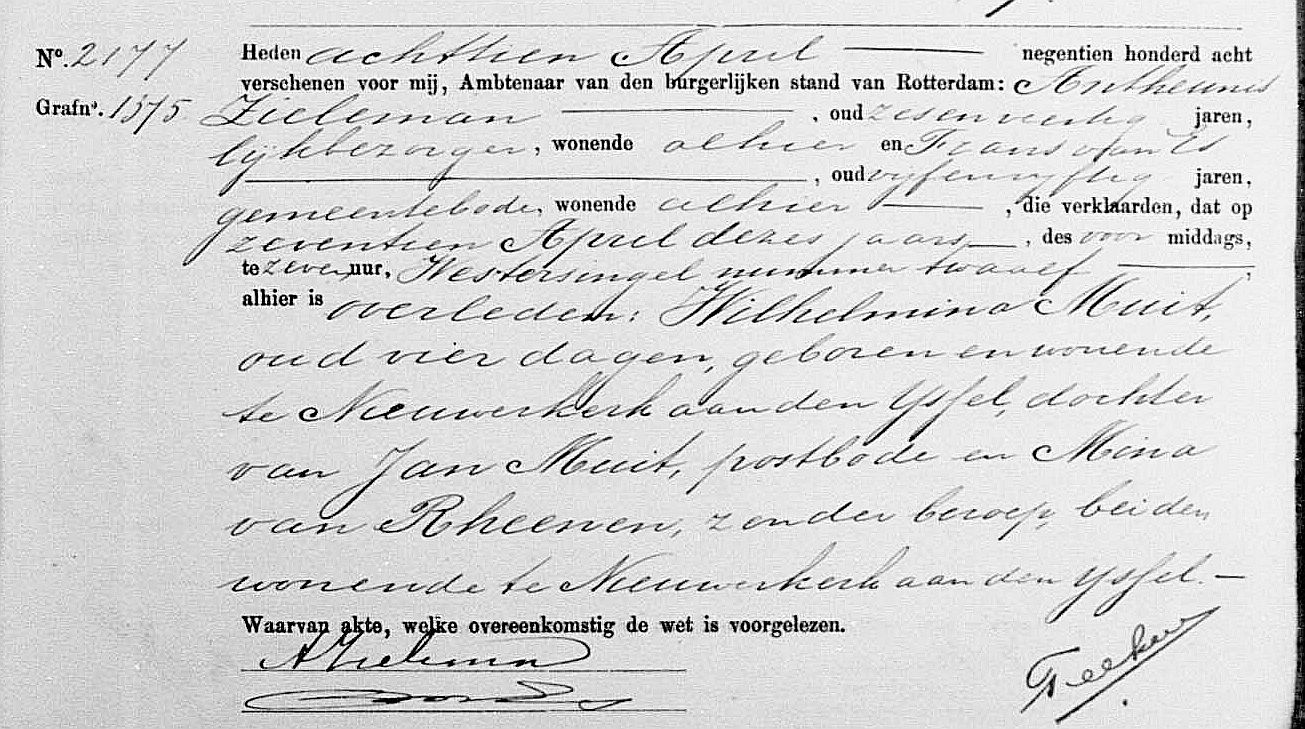 Nº. 2177 Heden achttien April negentien honderd acht
verschenen voor mij, Ambtenaar van den burgerlijken stand van Rotterdam: Antheunis
Grafnº. 1575. Zieleman, oud zesenveertig jaren,
lijkbezorger, wonende alhier en Frans van Es
, oud vijfenvijftig jaren,
gemeentebode, wonende alhier, die verklaarden, dat op
zeventien April dezes jaars, des voor middags,
te zeven uur, Westersingel nummer twaalf,
alhier is overleden: Wilhelmina Muit,
oud vier dagen, geboren en wonende
te Nieuwerkerk aan den Yssel, dochter
van Jan Muit, postbode en Mina
van Rheenen, zonder beroep, beiden
wonende te Nieuwerkerk aan den Yssel. –
Waarvan akte, welke overeenkomstig de wet is voorgelezen.
A Zieleman